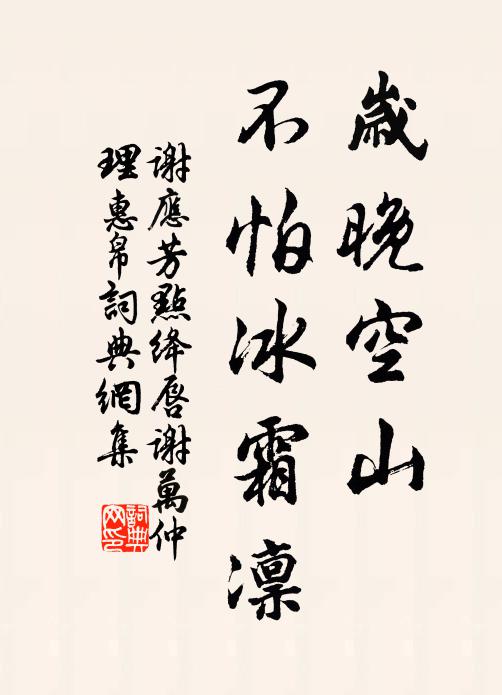 歲晚空山
不怕冰霜凛
謝應芳點绛唇謝萬仲
理惠帛詞典網集
詞典
网印